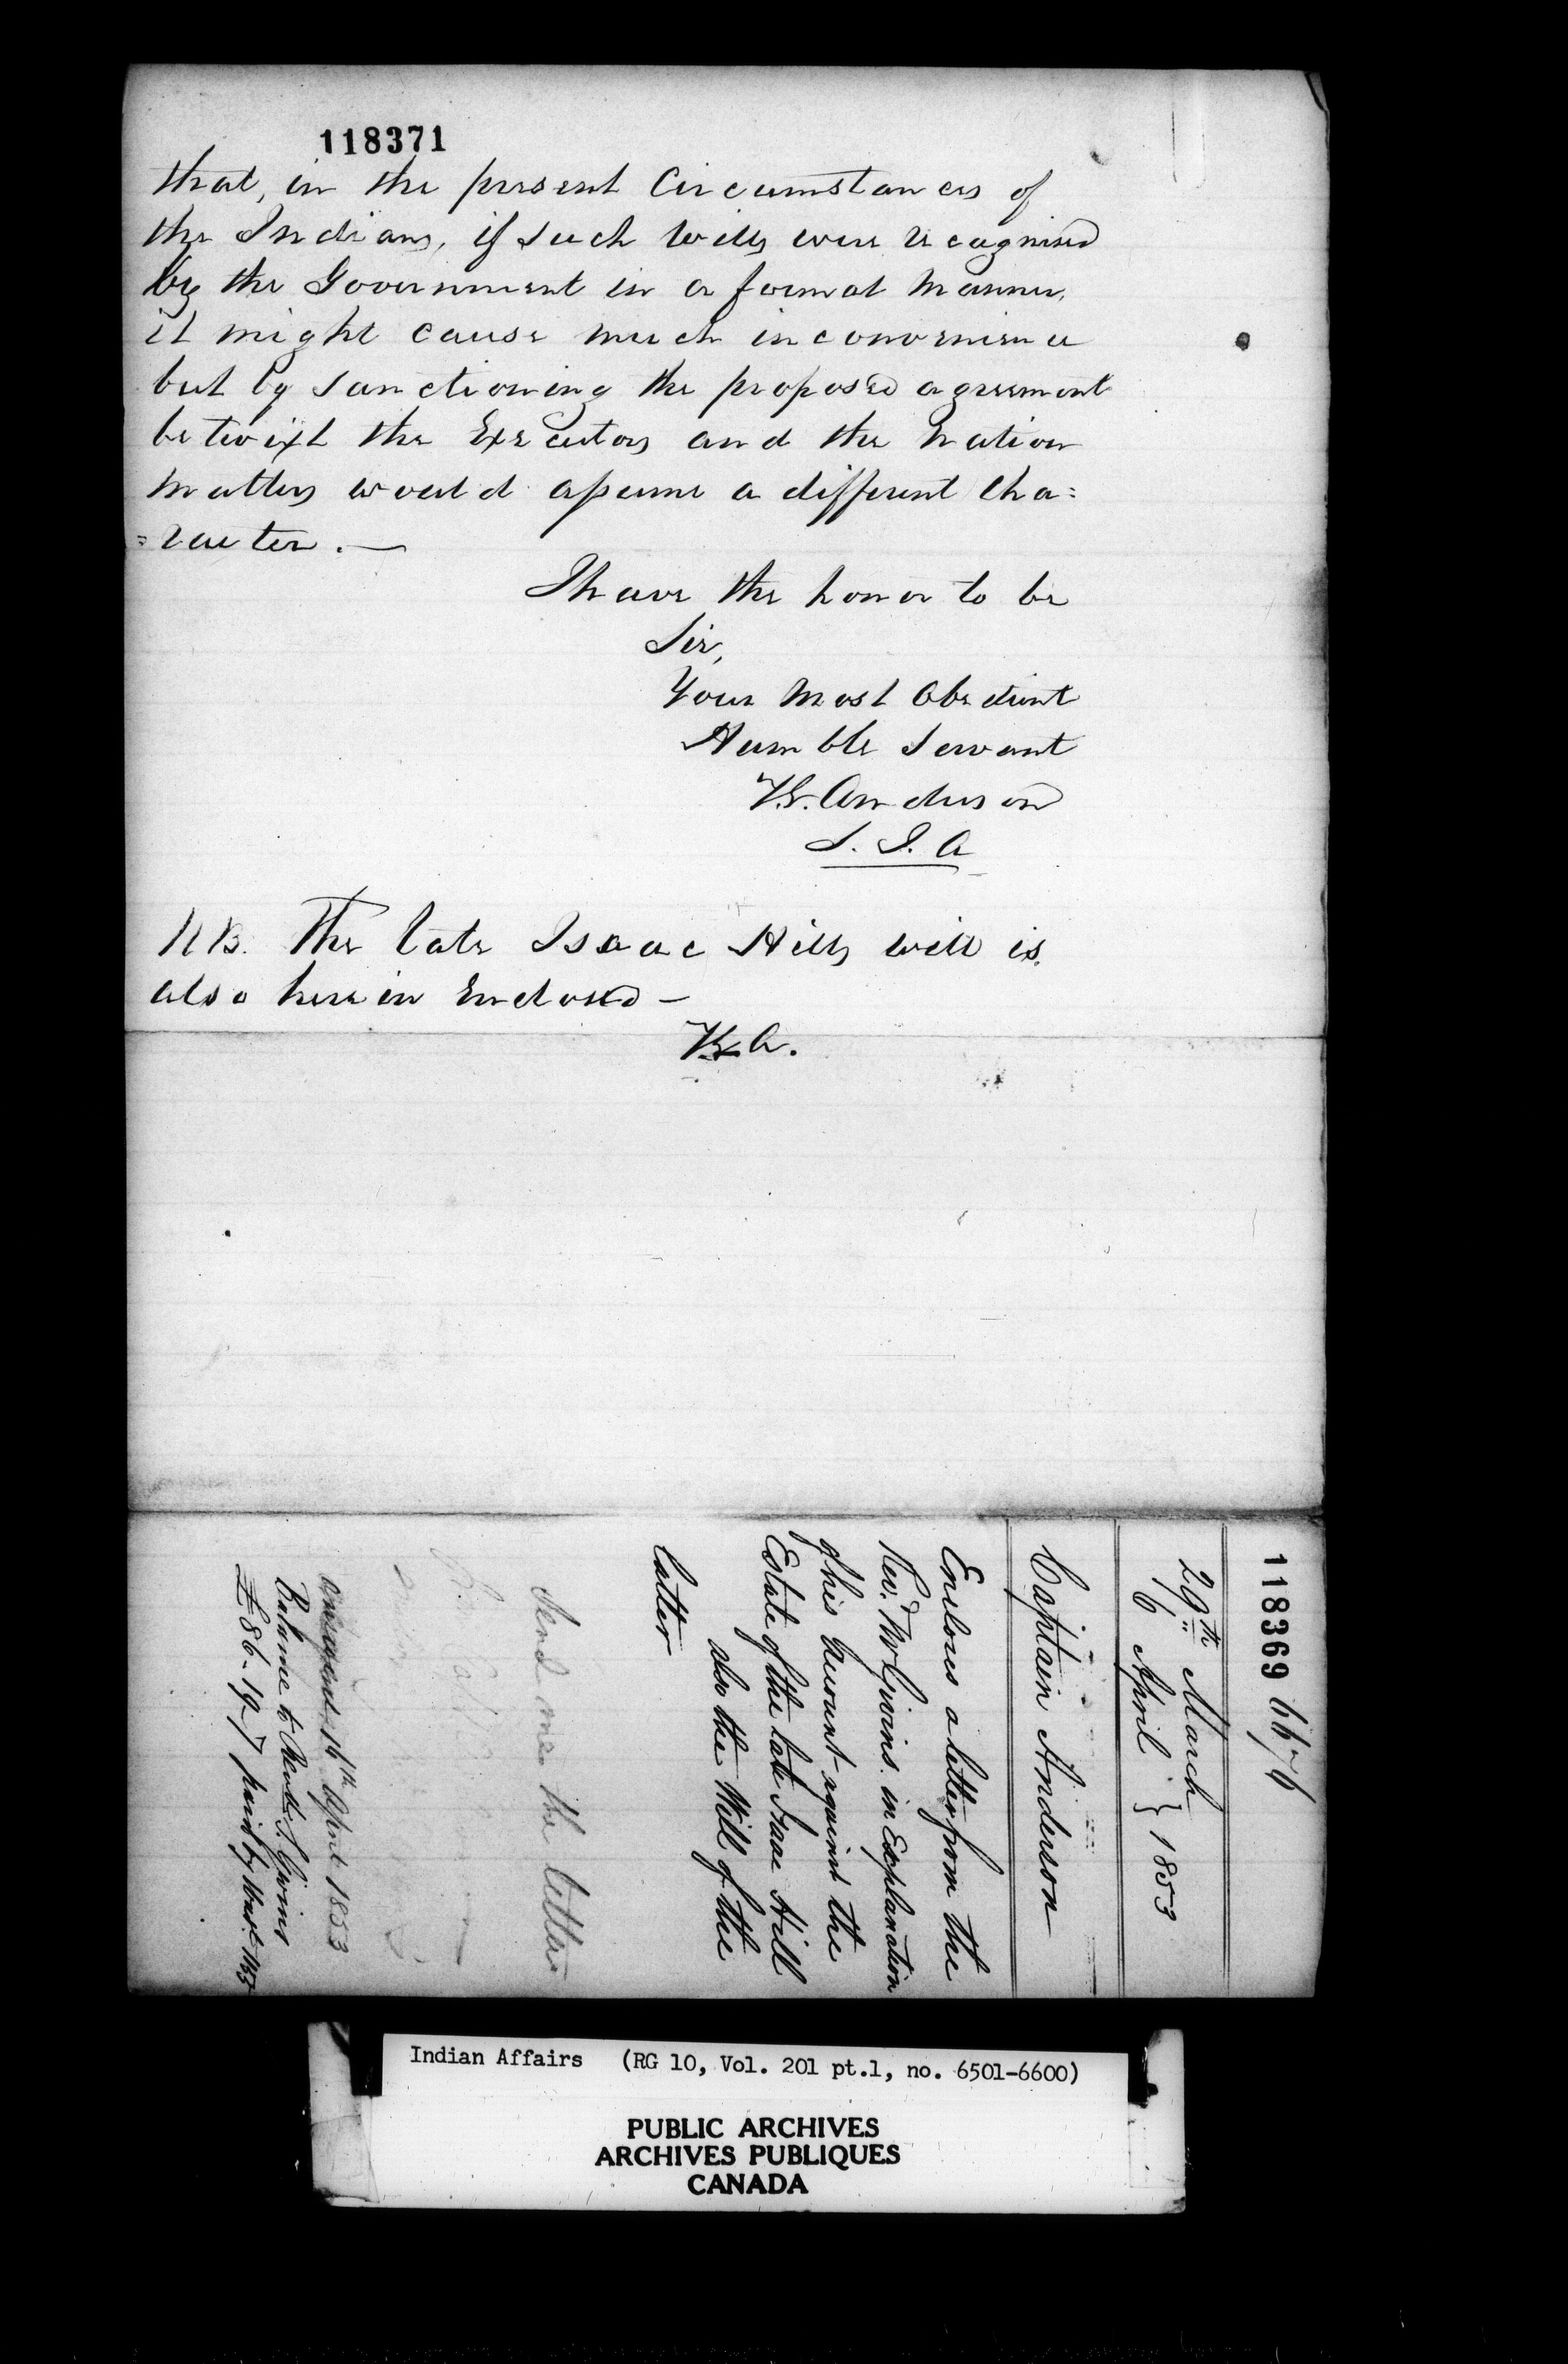 118371
that, in the present Circumstances of
the Indians, if such Wills were recognised
by the Government in a formal manner,
it might cause much inconvenience
but by sanctioning the proposed agreement
betwixt the Executors and the Nation
matters would assume a different cha=
=racter. —
I have the honor to be
Sir,
Your Most Obedient
Humble Servant
Anderson
S. I. A
NB. The late Isaac Hills will is
also herein Enclosed —
A.
118369 6676
29th March
6 April } 1853
Captain Anderson
Encloses a letter from the
Revd. Mr Givins in Explanation
of his Account against the
Estate of the late Isaac Hill
also the Will of the
latter
Send me the letter
16th April 1853
Balance to Revd. S. Givins
£86-19-7 paid by
Indian Affairs (RG 10, Vol. 201 pt.1, no. 6501-6600)
PUBLIC ARCHIVES
ARCHIVES PUBLIQUES
CANADA